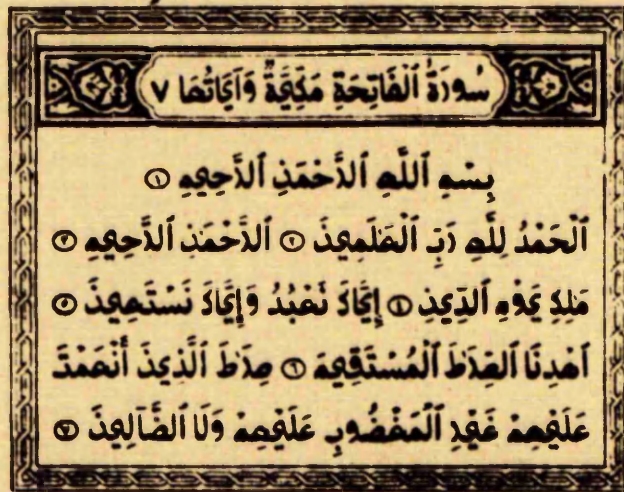 سُورَةُ ٱلْفَاتِحَةِ مَكِّيَّةٌ وَآيَاتُهَا ٧
بِسْمِ ٱللَّهِ ٱلرَّحْمَٰنِ ٱلرَّحِيمِ ١
ٱلْحَمْدُ لِلَّهِ رَبِّ ٱلْعَٰلَمِينَ ٢ ٱلرَّحْمَٰنِ ٱلرَّحِيمِ ٣
مَٰلِكِ يَوْمِ ٱلدِّينِ ٤ إِيَّاكَ نَعْبُدُ وَإِيَّاكَ نَسْتَعِينُ ٥
ٱهْدِنَا ٱلصِّرَٰطَ ٱلْمُسْتَقِيمَ ٦ صِرَٰطَ ٱلَّذِينَ أَنْعَمْتَ
عَلَيْهِمْ غَيْرِ ٱلْمَغْضُوبِ عَلَيْهِمْ وَلَا ٱلضَّآلِّينَ ٧